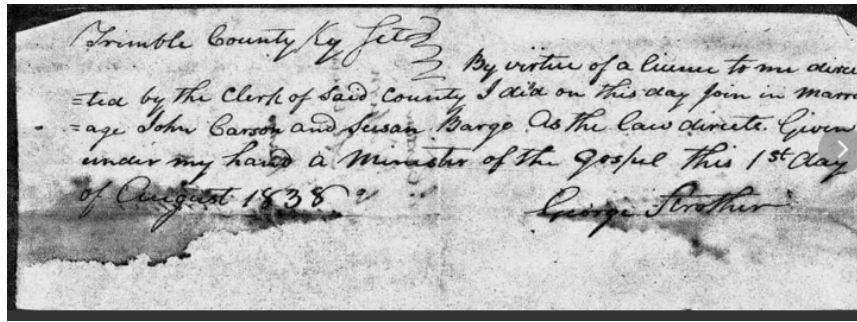 Trimble County Ky Sct
By virtue of a licence to me direc
=ted by the Clerk of said County I did on this day join in marri
=age John Carson and Susan Bargo As the law directs. Given
under my hand a Minister of the Gospel this 1st day
of August 1838
George Strother